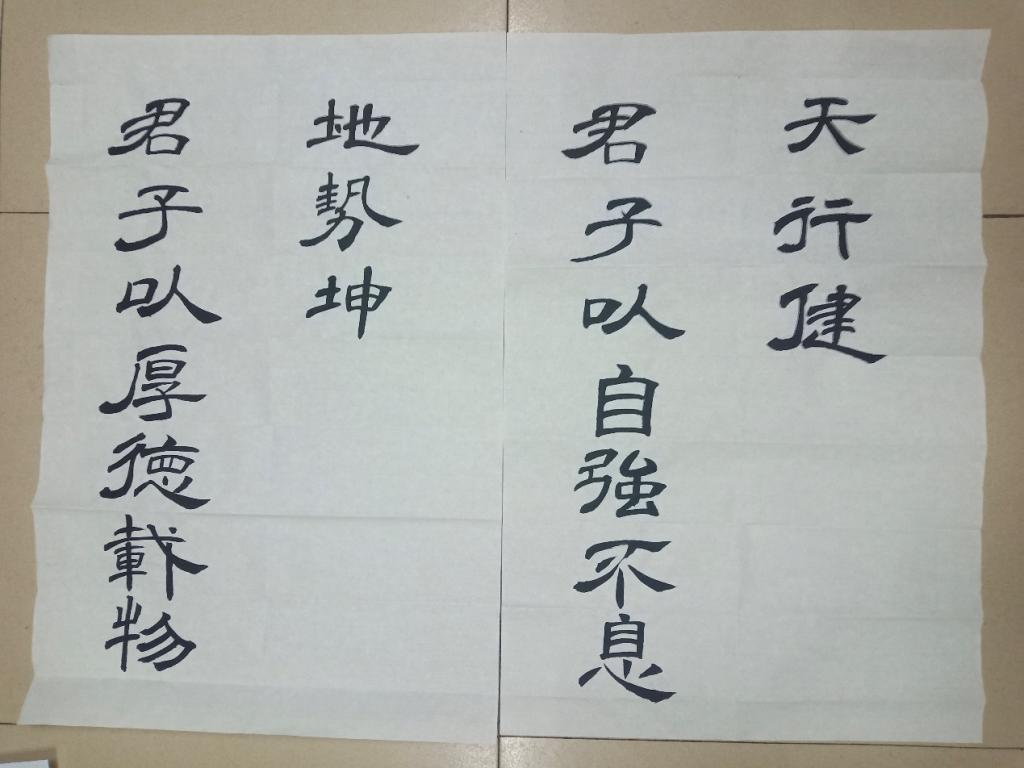 天行健
君子以自強不息
地勢坤
君子以厚德載物